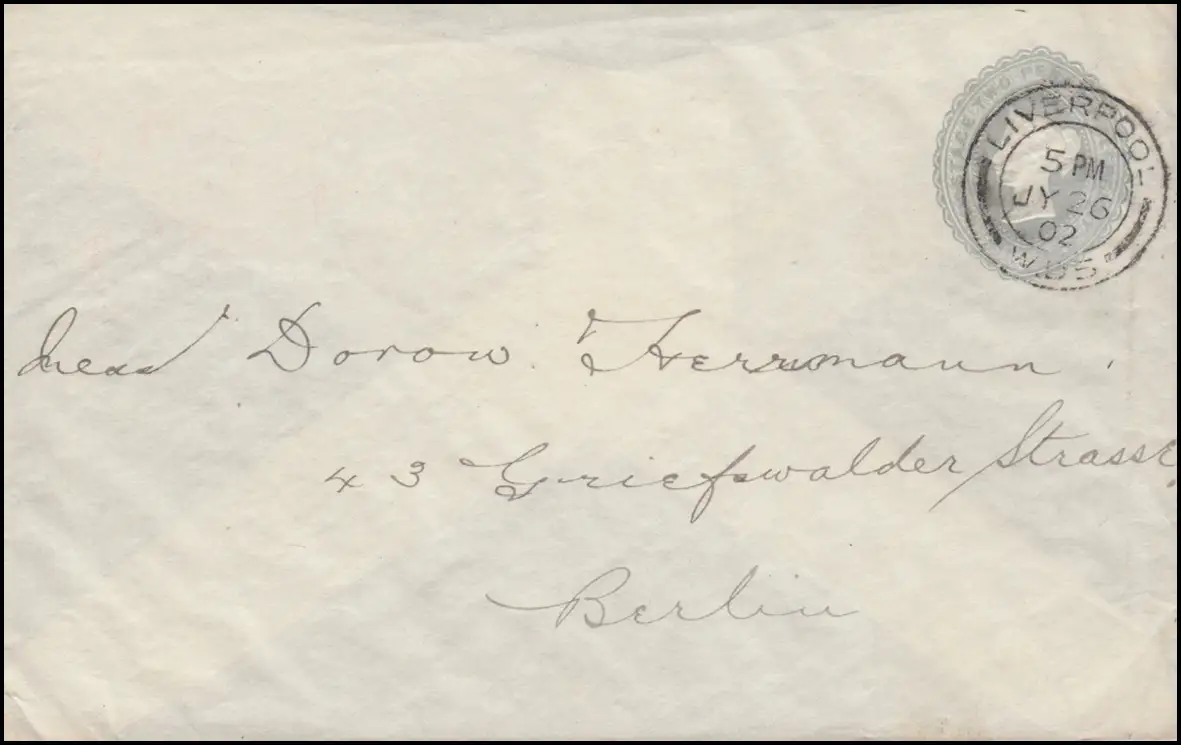 POSTAGE TWO PE
LIVERPOOL
5 PM
JY 26
02
Dorow Herrmann
43 Griefswalder Strasse
Berlin